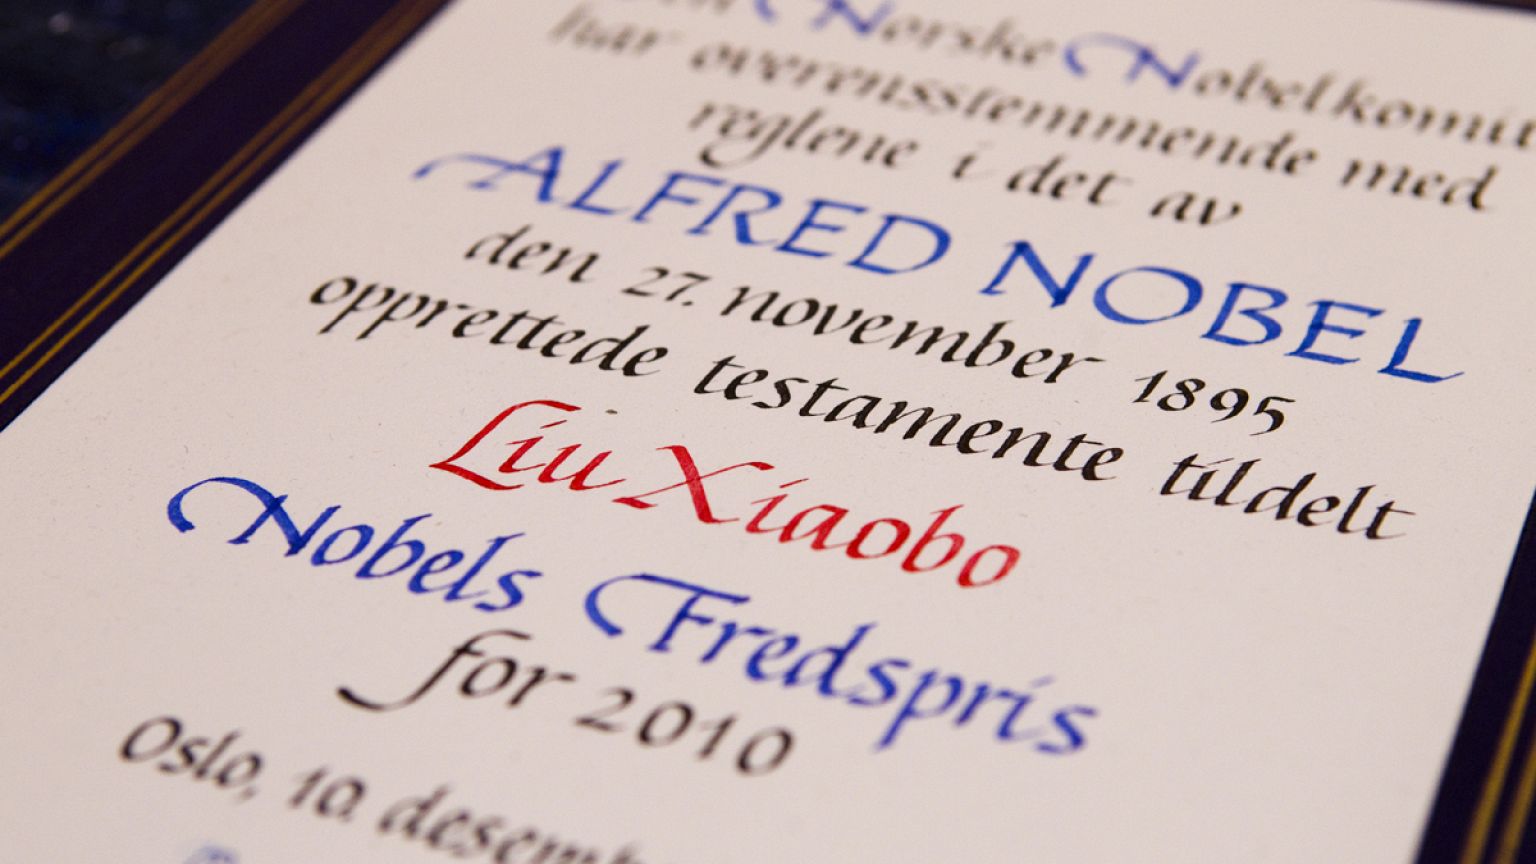 Norske Nobelkomit
har overensstemmende med
reglene i det av
ALFRED NOBEL
den 27. november 1895
opprettede testamente tildelt
Liu Xiaobo
Nobels Fredspris
for 2010
Oslo, 10. desemb